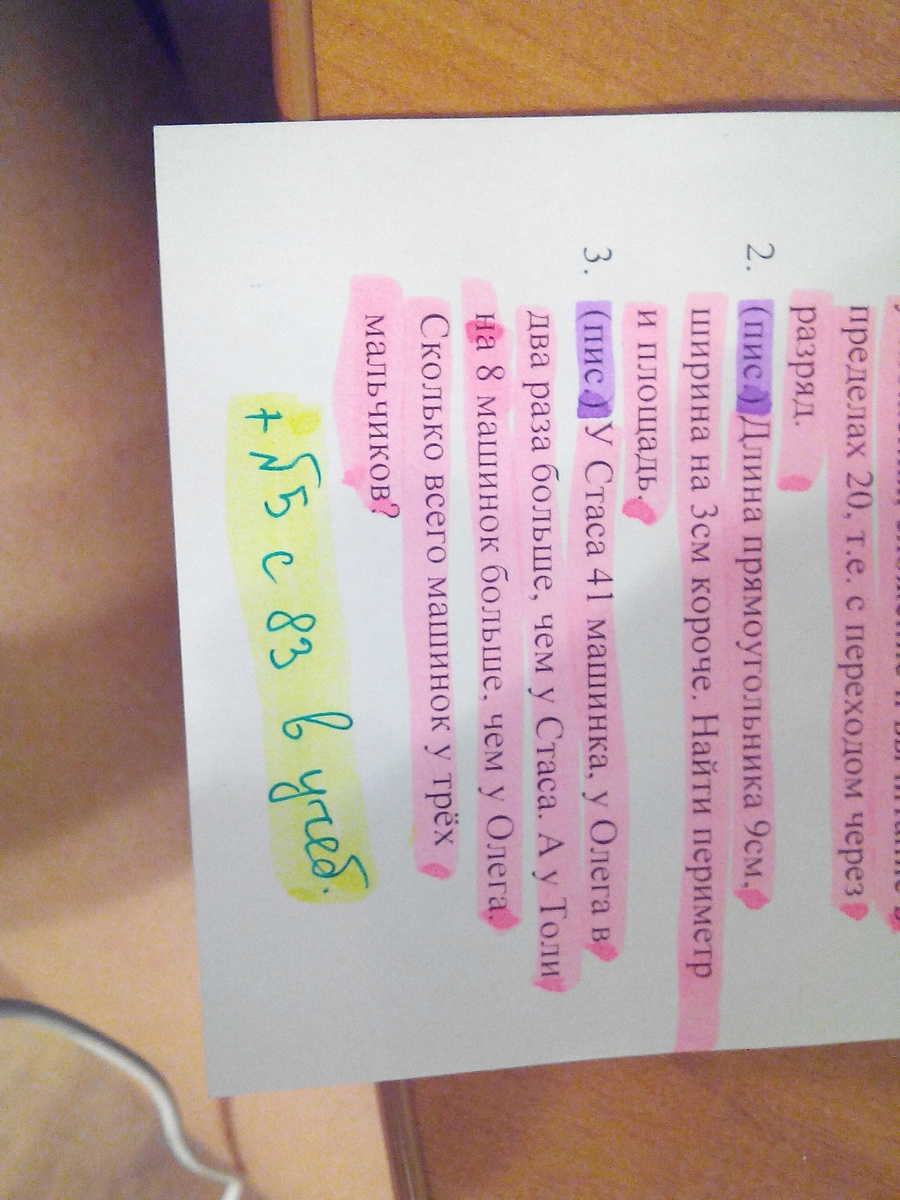 пределах 20, т.е. с переходом через
разряд.
2. (пис.) Длина прямоугольника 9см,
ширина на 3см короче. Найти периметр
и площадь.
3. (пис.) У Стаса 41 машинка, у Олега в
два раза больше, чем у Стаса. А у Толи
на 8 машинок больше, чем у Олега.
Сколько всего машинок у трёх
мальчиков?
+ №5 с 83 в учеб.